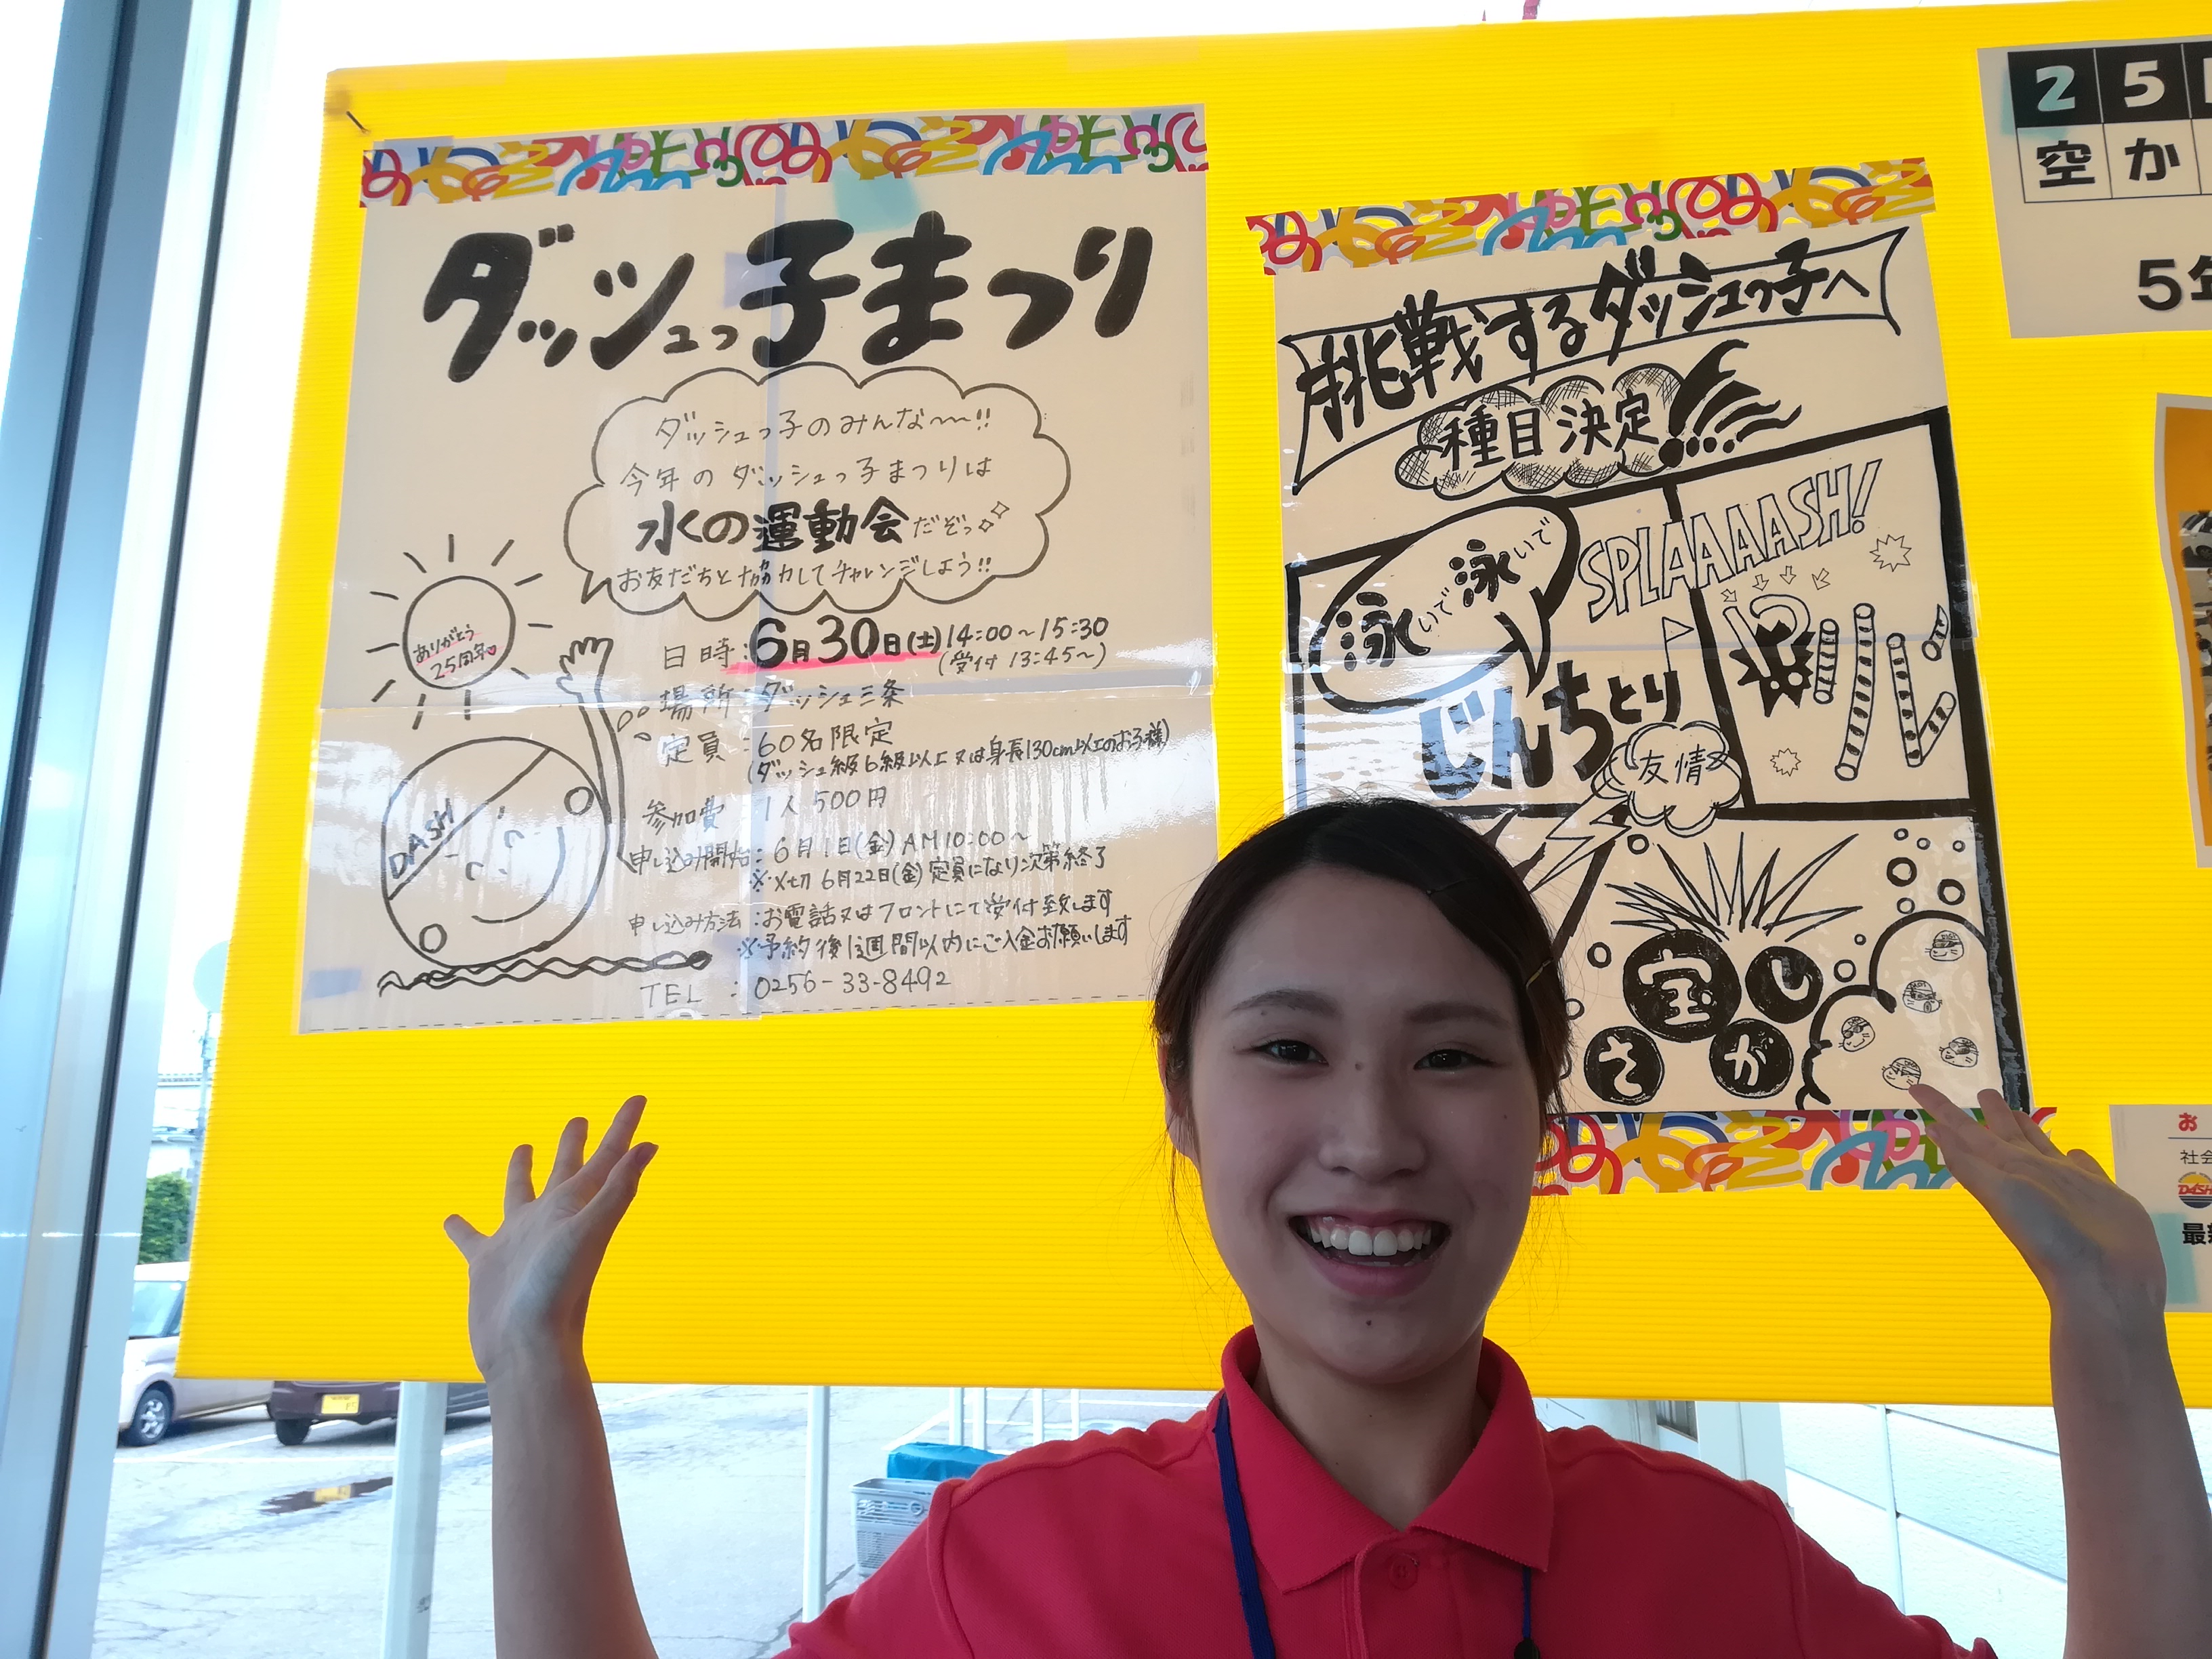 ダッシュっ子まつり
ダッシュっ子のみんな〜!!
今年のダッシュっ子まつりは
水の運動会だぞっ
お友だちと協力してチャレンジしよう!!
ありがとう
25周年
DASH
日時:6月30日(土)14:00〜15:30
(受付 13:45〜)
場所:ダッシュ三条
定員:60名限定
(ダッシュ級6級以上又は身長130cm以上のお子様)
参加費:1人 500円
申し込み開始:6月1日(金)AM10:00〜
※〆切 6月22日(金)定員になり次第終了
申し込み方法:お電話又はフロントにて受付致します
※予約後1週間以内にご入金お願いします
TEL:0256-33-8492
挑戦するダッシュっ子へ
種目決定!!!
泳いで泳いで
じんちとり
SPLAAAASH!
友情
宝さがし
25
空か
5
お
社会
DASH